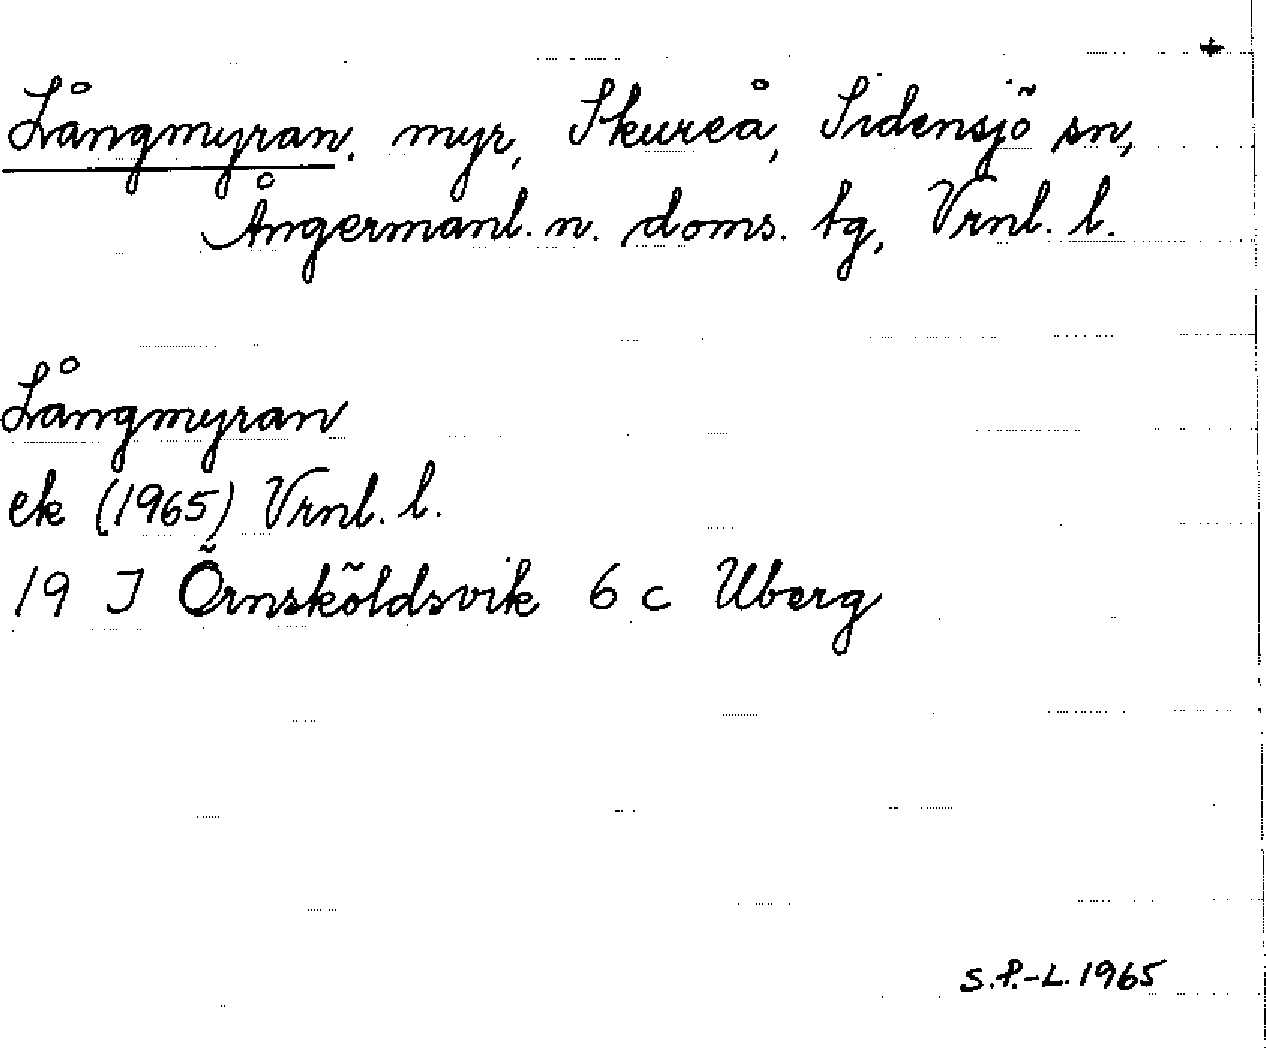 +
Långmyran, myr, Skureå, Sidensjö sn,
Ångermanl. n. doms. tg, Vrnl. l.
Långmyran
ek (1965) Vrnl. l.
19 J Örnsköldsvik 6 c Uberg
S.P.-L. 1965